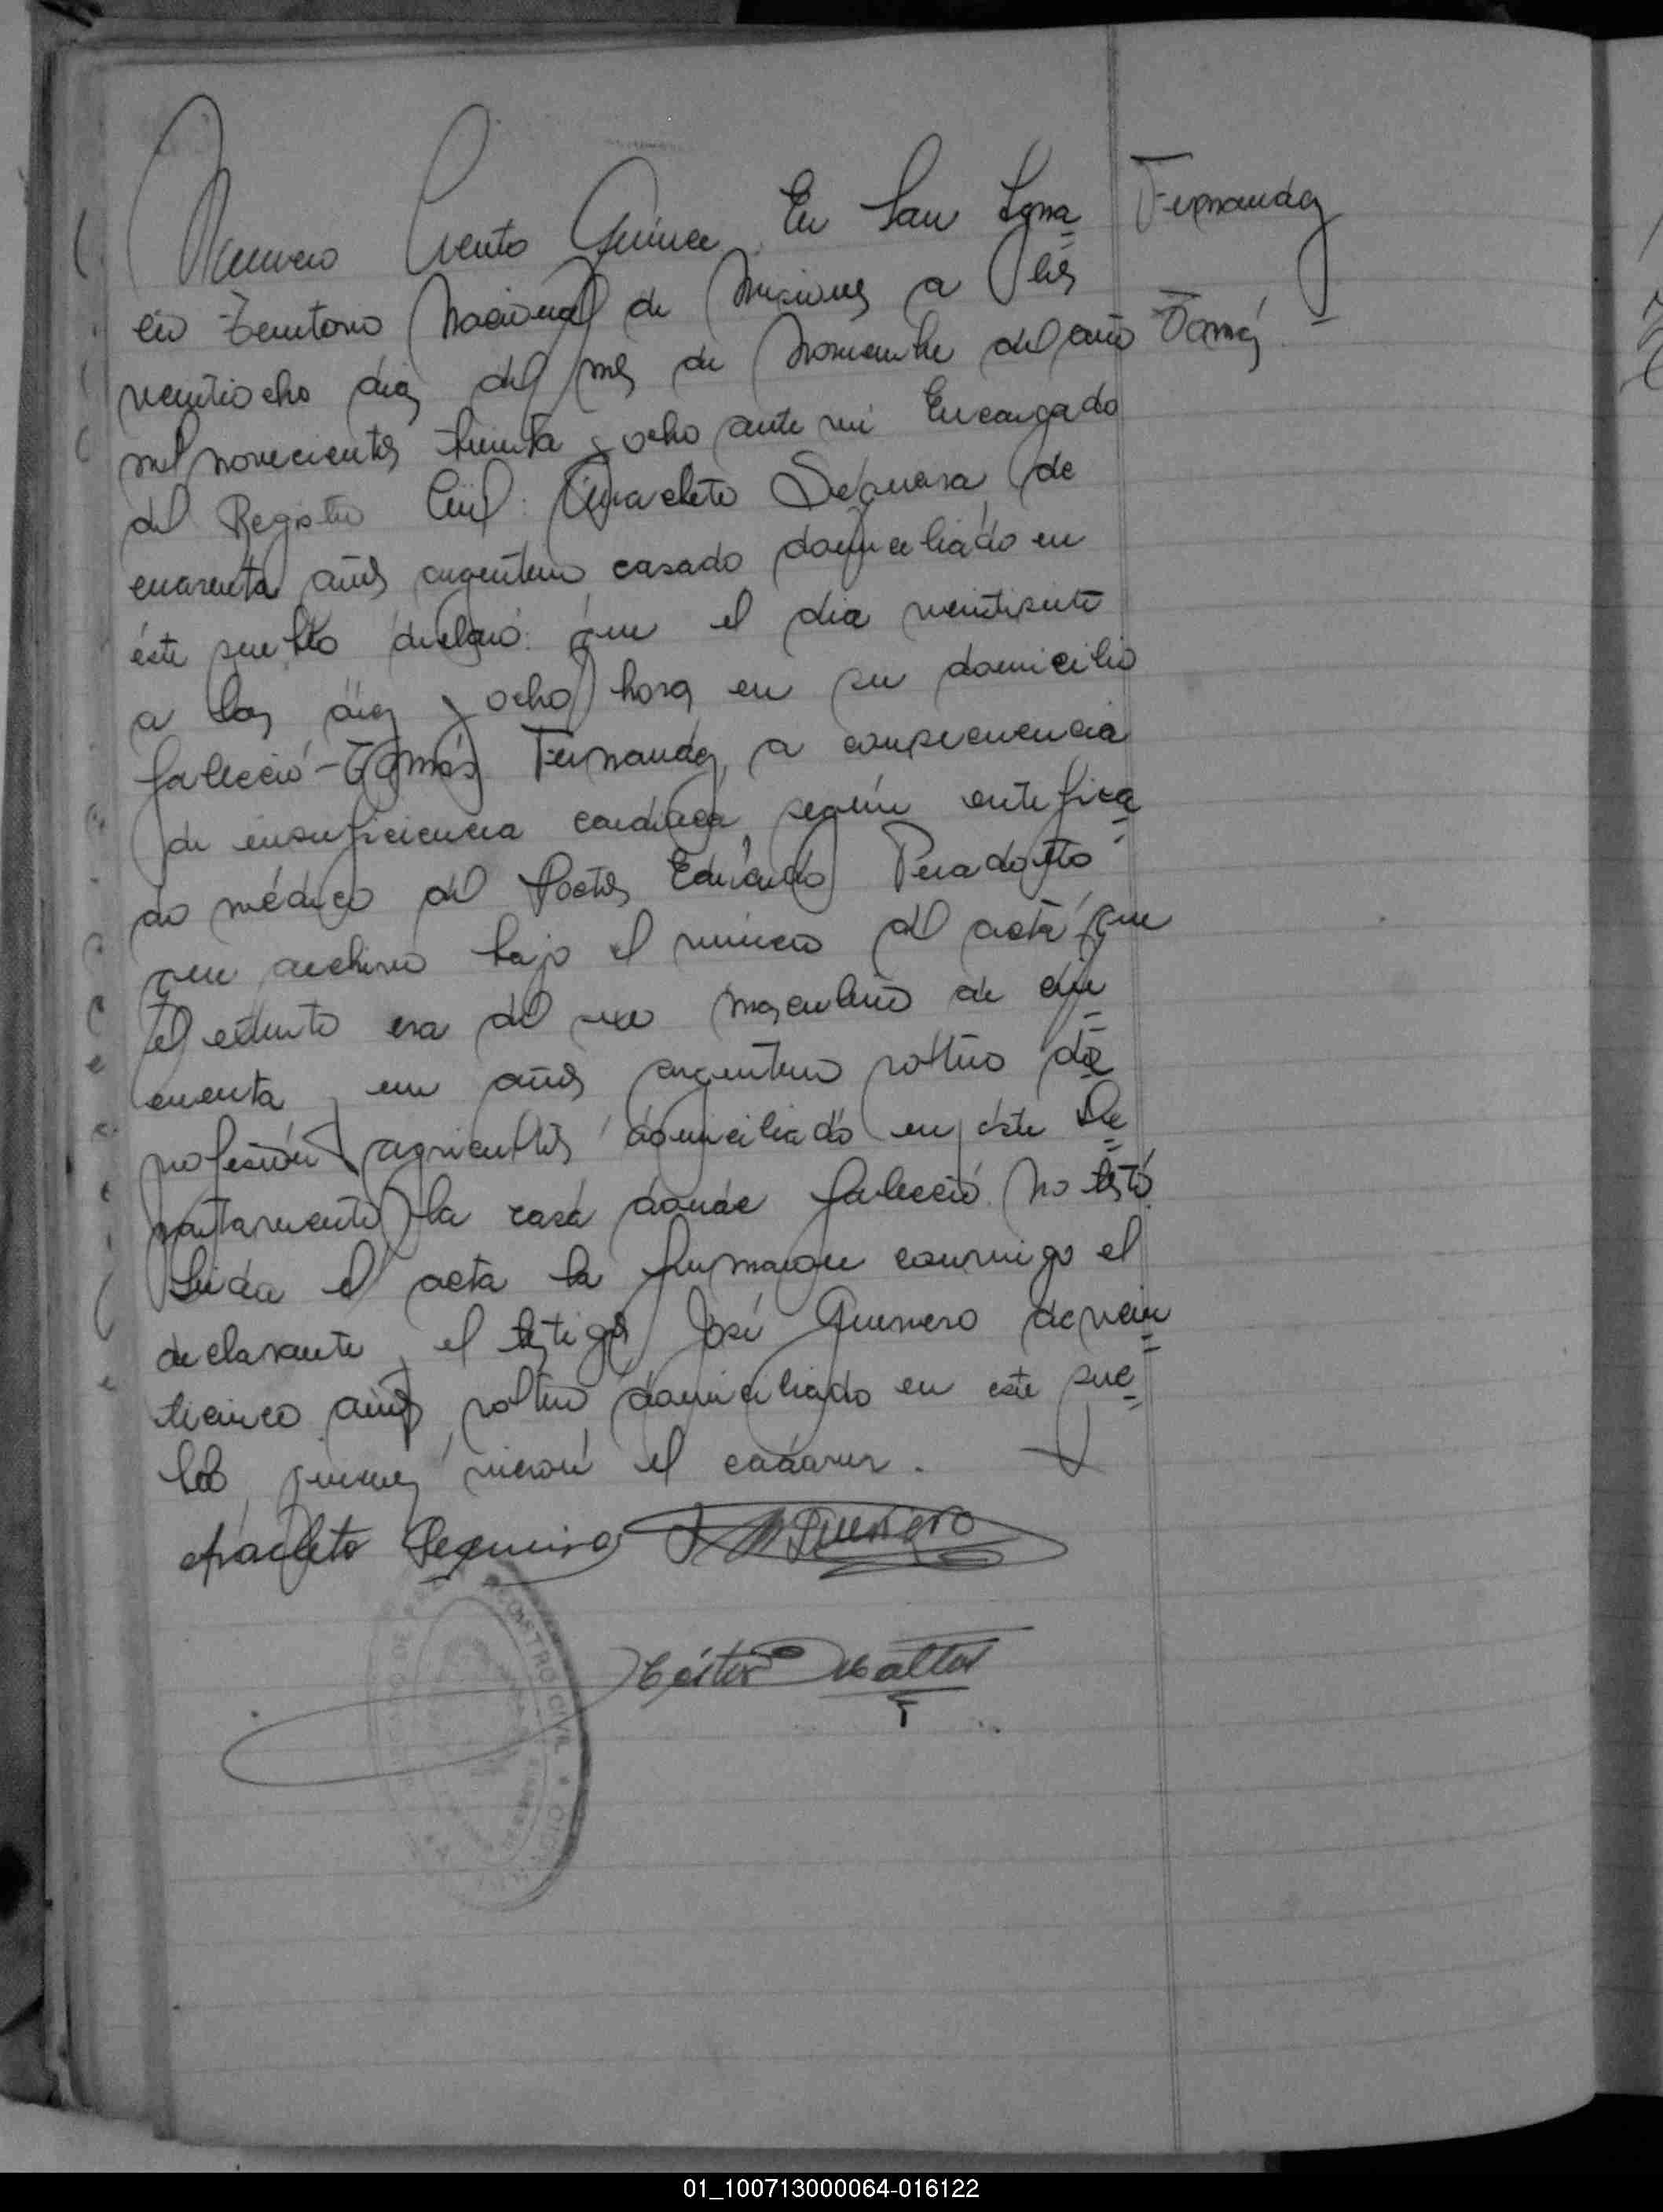 Numero Ciento Quince. En San Igna
Fernandez
cio Territorio Nacional de Misiones a los
Tomás
veintiocho dias del mes de Noviembre del año
mil novecientos treinta y ocho ante mi Encargado
del Registro Civil: Anacleto Sequeira, de
cuarenta años argentino, casado domiciliado en
éste pueblo declaró: que el dia veintisiete
a las diez y ocho horas en su domicilio
falleció Tomás Fernandez, a consecuencia
de insuficiencia cardiaca, según certifica
do médico del Doctor Eduardo Peradotto
que archivo bajo el número del acta que
el extinto era del sexo masculino de cin
cuenta y un años argentino soltero de
profesión agricultor domiciliado en éste De
partamento la casa donde falleció. No testó.
Leida el acta la firmaron conmigo el
declarante y el testigo José Guerrero de vein
ticinco años, soltero domiciliado en este pue
blo, quienes vieron el cadaver.
Anacleto Sequeira Guerrero
Héctor
REGISTRO CIVIL